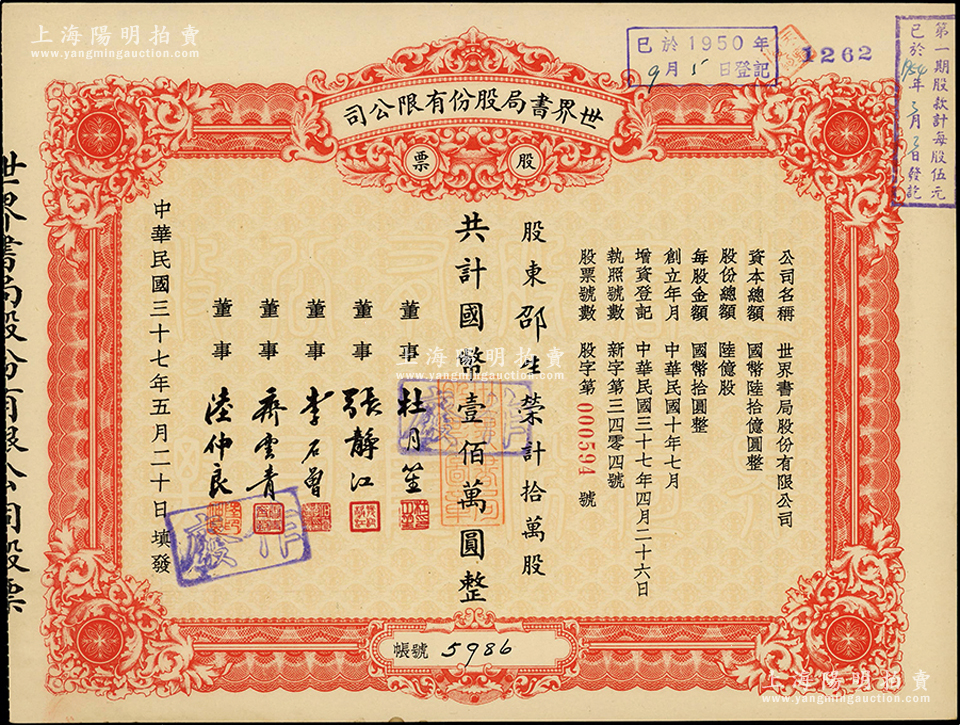 上海陽明拍賣
www.yangmingauction.com
已於1950年
9月5日登記
1262
第一期股款計每股伍元
已於1954年 月 日發訖
世界書局股份有限公司
股票
公司名稱 世界書局股份有限公司
資本總額 國幣陸拾億圓整
股份總額 陸億股
每股金額 國幣拾圓整
創立年月 中華民國十年七月
增資登記 中華民國三十七年四月二十六日
執照號數 新字第三四零四號
股票號數 股字第0000594號
股東邵生榮計拾萬股
共計國幣壹佰萬圓整
董事 杜月笙
董事 張靜江
董事 李石曾
董事 齊雲青
董事 陸仲良
中華民國三十七年五月二十日填發
作廢
作廢
上海陽明拍賣
www.yangmingauction.com
世界書局股份有限公司股票
帳號 5986
上海陽明拍賣
www.yangmingauction.com